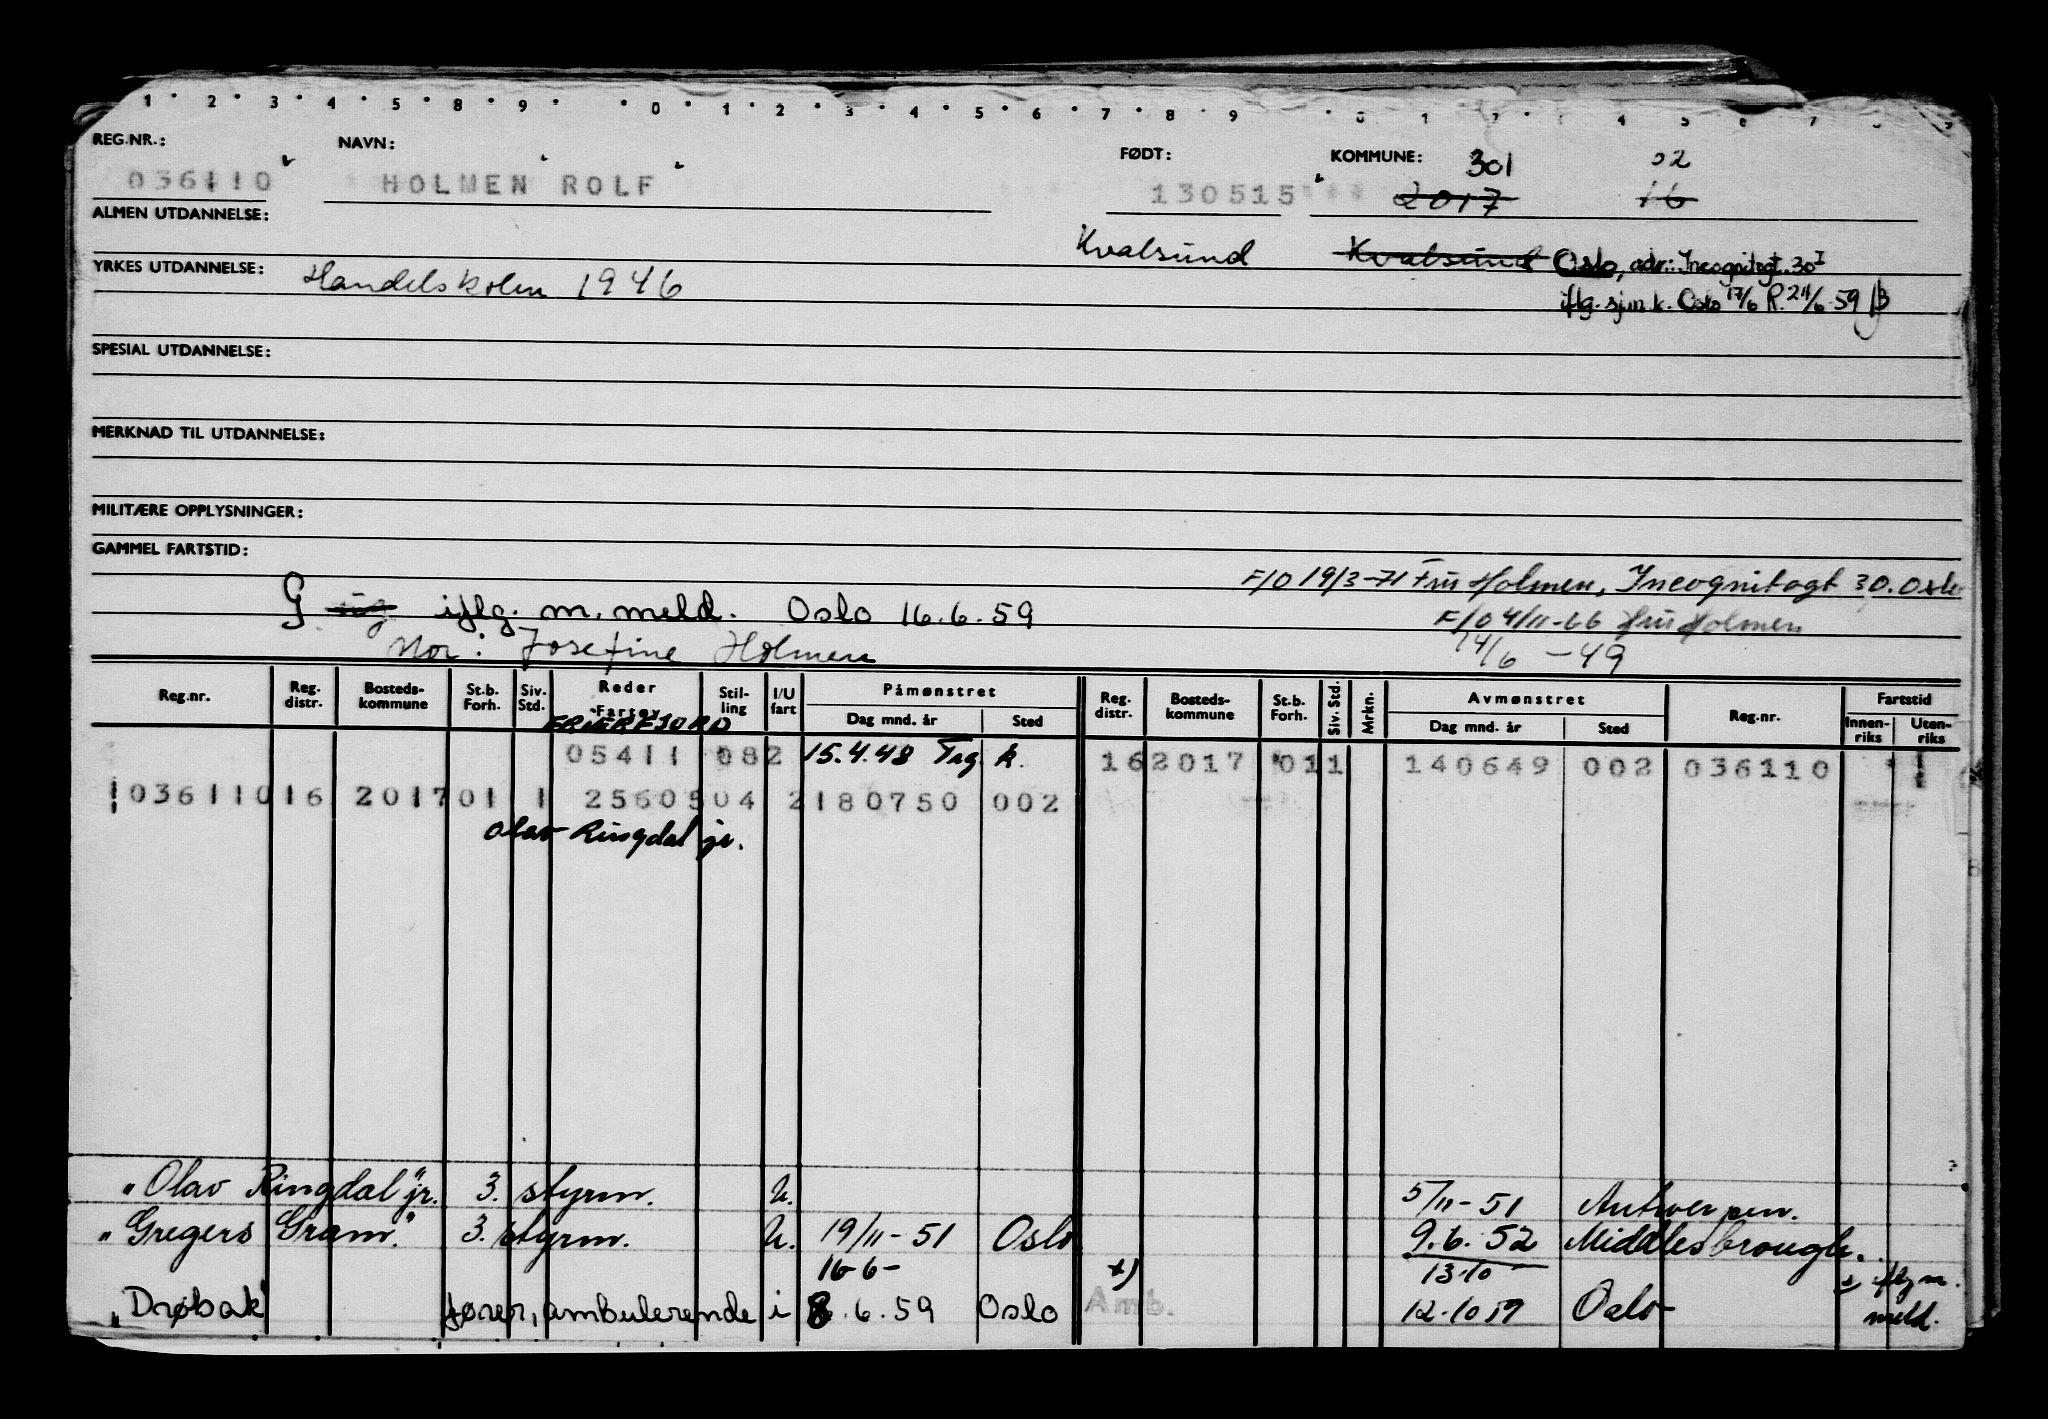 1 2 3 4 5 8 9 0 1 2 3 4 5 6 7 8 9 0 1 2 3 4 5 6 7
REG.NR.: NAVN: FØDT: KOMMUNE: 301 02
036110 HOLMEN ROLF 130515 2017 16
ALMEN UTDANNELSE: Kvalsund Kvalsund Oslo, adr.: Incognitogt. 30 I
YRKES UTDANNELSE: Handelskolen 1946 iflg. sjm.k. Oslo 17/6 R. 24/6-59
SPESIAL UTDANNELSE:
MERKNAD TIL UTDANNELSE:
MILITÆRE OPPLYSNINGER:
GAMMEL FARTSTID:
F/O 19/3-71 Fru Holmen, Incognitogt 30. Oslo
G ug iflg. m. meld. Oslo 16.6.59 F/O 4/11-66 Fru Holmen
Mor: Josefine Holmen 14/6 -49
Reg.nr. Reg. distr. Bosteds-kommune St.b. Forh. Siv. Std. Reder Fartøy Stil-ling I/U fart Påmønstret Dag mnd. år Sted Reg. distr. Bosteds-kommune St.b. Forh. Siv. Std. Mrkn. Avmønstret Dag mnd. år Sted Reg.nr. Fartstid Innen-riks Uten-riks
FRIERFJORD
05411 082 15.4.48 Trg. k. 162017 011 140649 002 036110
1036110 16 2017 01 1 25605 04 2 180750 002
Olav Ringdal jr.
"Olav Ringdal" jr. 3. styrm. U. 5/11-51 Antwerpen.
"Gregers Gram." 3. styrm. U. 19/11-51 Oslo 9.6.52 Middlesbrough.
16-6- x) 13.10 x) iflg m.
"Drøbak" fører, ambulerende i 8.6.59 Oslo Amb. 12.10 59 Oslo meld.